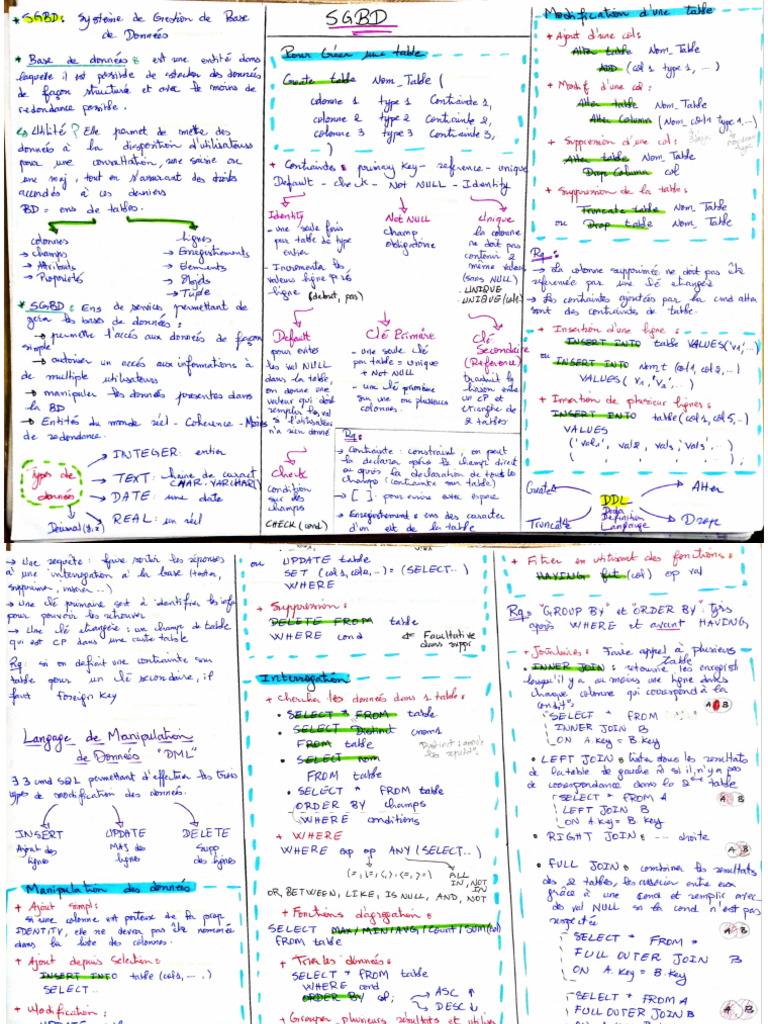 * SGBD: Système de Gestion de Base
de Données
* Base de données : est une entité dans
laquelle il est possible de stocker des données
de façon structuré et avec le moins de
redondance possible.
↳ Utilité ? Elle permet de mettre des
données à la disposition d'utilisateurs
pour une consultation, une saisie ou
une maj, tout en s'assurant des droits
accordés à ces derniers
BD = ens de tables.
colonnes
→ champs
→ Attributs
→ Propriétés
lignes
→ Enregistrements
→ Elements
→ Objets
→ Tuple
* SGBD : Ens de services permettant de
gérer les base de données :
→ permettre l'accés aux données de façon
simple
→ autoriser un accés aux informations à
de multiple utilisateurs
→ manipuler les données présentées dans
la BD
→ Entités du monde réel - Coherence - Moins
de redondance.
Types de
données
→ INTEGER: entier
→ TEXT: chaine de caract
CHAR. VARCHAR()
→ DATE: une date
→ REAL: un réel
Decimal(8,2)
SGBD
Pour Créer une table
Create table Nom_Table (
colonne 1 type 1 Contrainte 1,
colonne 2 type 2 Contrainte 2,
colonne 3 type 3 Contrainte 3,
)
+ Contraintes : primary Key - reference - unique
Default - check - Not NULL - Identity
Identity
- une seule fois
par table de type
entier
- Incremente les
valeurs ligne par
ligne (debut, pas)
Not NULL
champ
obligatoire
Unique
la colonne
ne doit pas
contenir 2
même valeurs
(sans NULL)
. UNIQUE
UNIQUE (col)
Default
pour eviter
les val NULL
dans la table,
on donne une
valeur qui doit
remplir les val
si l'utilisateur
n'a rien donné
Clé Primaire
- une seule clé
par table = unique
+ Not NULL
- une clé primaire
sur une ou plusieurs
colonnes.
Clé
Secondaire
(Réference)
traduit la
liaison entre
un CP et
etrangère de
2 tables
Check
condition
sur des
champs
CHECK (cond)
Rq:
→ Contrainte : constraint, on peut
la declarer après le champ direct
ou après la declaration de tout les
champs (contrainte sur table)
→ [ ] : pour ecrire avec espace
→ Enregistrement : ens des caracter
d'un est de la table
Modification d'une table
+ Ajout d'une col:
Alter table Nom_Table
ADD (col 1 type 1, ...)
+ Modif d'une col:
Alter table Nom_Table
Alter Column (Nom_col1 type 1...)
+ Suppression d'une col:
Alter table Nom_Table
Drop Column col
+ Suppression de la table:
Truncate table Nom_Table
ou Drop table Nom_Table
Rq:
→ la colonne supprimée ne doit pas être
referencée par une clé etrangère
→ les contraintes ajoutées par la cmd alter
sont des contraintes de table.
+ Insertion d'une ligne :
INSERT INTO table VALUES('v1',...)
ou
INSERT INTO nom_t (col1, col2, ...)
VALUES ('v1','v2', ...)
+ Insertion de plusieur lignes :
INSERT INTO table (col1, col5, ..)
VALUES
('val1', val2, val3, 'val5', ...)
( , , , , )
Create
Truncate
DDL
Data
Definition
Language
Alter
Drop
→ Une requête : faire sortir les réponses
à une interrogation à la base (
supprimer, inserer...)
→ Une clé primaire sert à identifier les info
pour pouvoir les retrouver
→ Une clé etrangère : un champ de table
qui est CP dans une autre table
Rq: si on definit une contrainte sur
table pour un clé secondaire, il
faut Foreign Key
Langage de Manipulation
de Données "DML"
∃ 3 cmd SQL permettant d'effectuer les trois
types de modification des données.
INSERT
Ajout des
lignes
UPDATE
MAJ des
lignes
DELETE
Supp
des lignes
Manipulation des données
+ Ajout simple:
si une colonne est porteuse de la prop
IDENTITY, elle ne devra pas être nommée
dans la liste des colonnes.
+ Ajout depuis Selection :
INSERT INTO table (col1, ... )
SELECT..
+ Modification :
UPDATE table
ou UPDATE table
SET (col1, col2, ..) = (SELECT..)
WHERE
+ Suppression :
DELETE FROM table
WHERE cond
← Facultative
dans suppr
Interrogation
+ Chercher les données dans 1 table:
• SELECT * FROM table
• SELECT Distinct cnoms
FROM table
Distinct :
• SELECT nom
FROM table
• SELECT * FROM table
ORDER BY champs
WHERE conditions
+ WHERE
WHERE exp op ANY (SELECT..)
(=, !=, <, >, <=, >=)
ALL
IN, NOT
IN
OR, BETWEEN, LIKE, IS NULL, AND, NOT
+ Fonctions d'agrégation :
SELECT MAX/MIN/AVG/Count/SUM(col)
FROM table
+ Trier les données:
SELECT * FROM table
WHERE cond
ORDER BY cl;
→ ASC ↑
→ DESC ↓
+ Grouper plusieurs résultats et utiliser
+ Filtrer en utilisant des fonctions :
HAVING fct(col) op val
Rq: "GROUP BY" et "ORDER BY" Tjrs
après WHERE et avant HAVING,
+ Jointures : Faire appel à plusieurs
table
• INNER JOIN : retourne les enregist
lorsqu'il y a au moins une ligne dans
chaque colonne qui correspond à la
condit°
A B
SELECT * FROM A
INNER JOIN B
ON A.Key = B.Key
• LEFT JOIN : lister tous les resultats
de la table de gauche m̂ si il n'y a pas
de correspondance dans la 2eme table
SELECT * FROM A
LEFT JOIN B
ON A.Key = B.Key
A B
• RIGHT JOIN : --- droite
A B
• FULL JOIN : combiner les resultats
des 2 tables, les associer entre eux
grâce à une cond et remplir avec
des val NULL si la cond n'est pas
respectée
A B
SELECT * FROM *
FULL OUTER JOIN B
ON A.Key = B.Key
SELECT * FROM A
FULL OUTER JOIN B
A B